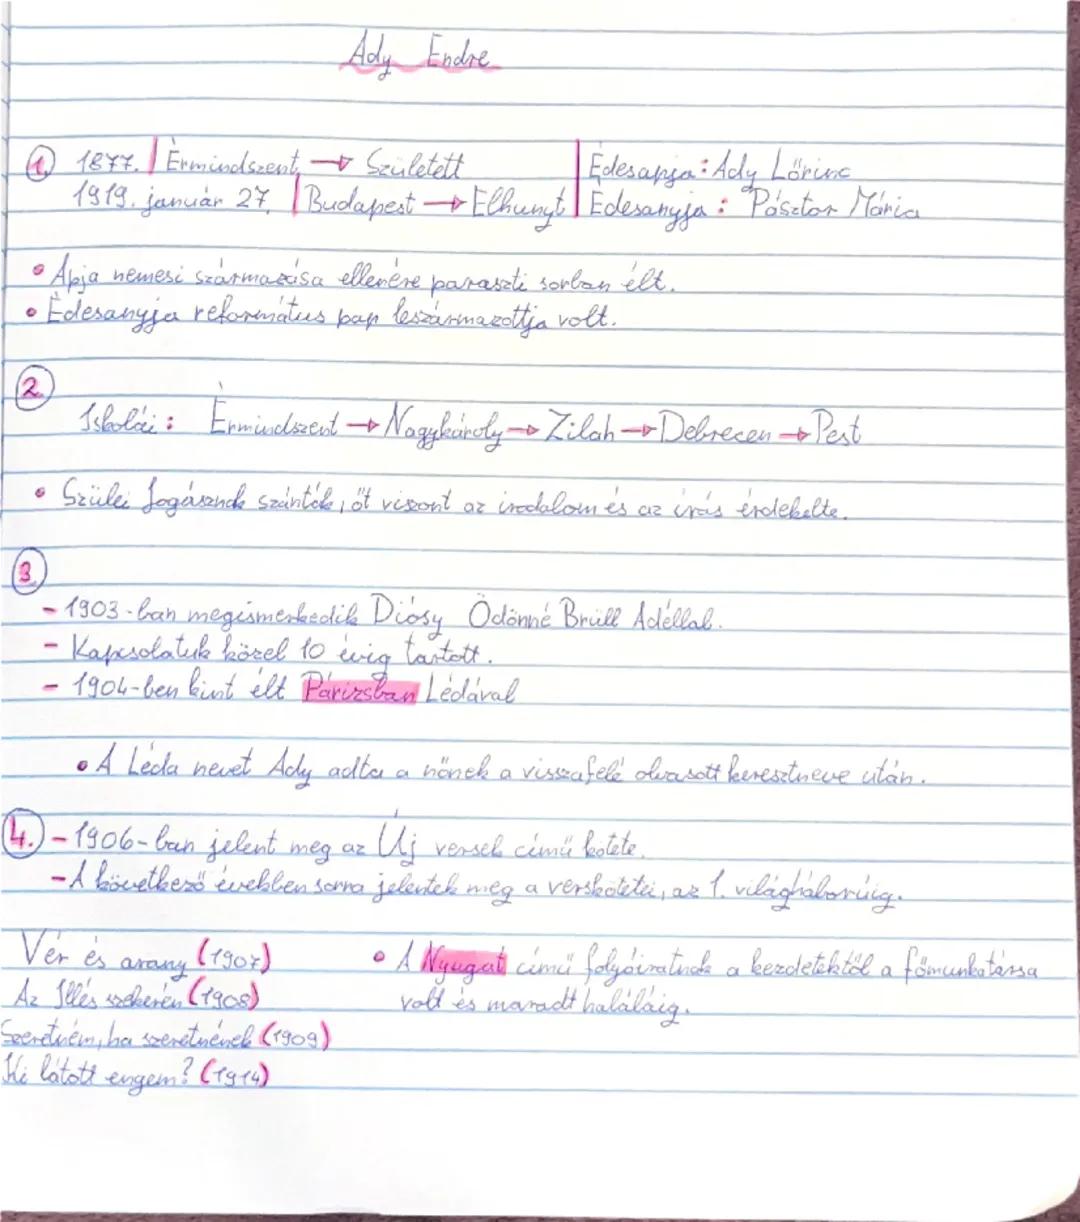 Ady Endre
1. 1877. | Érmindszent → Született | Édesapja: Ady Lőrinc
1919. január 27. | Budapest → Elhunyt | Édesanyja: Pásztor Mária
• Apja nemesi származása ellenére paraszti sorban élt.
• Édesanyja református pap leszármazottja volt.
2.
Iskolái: Érmindszent → Nagykároly → Zilah → Debrecen → Pest
• Szülei jogásznak szánták, őt viszont az irodalom és az írás érdekelte.
3.
- 1903-ban megismerkedik Diósy Ödönné Brüll Adéllal.
- Kapcsolatuk közel 10 évig tartott.
- 1904-ben kint élt Párizsban Lédával
• A Léda nevet Ady adta a nőnek a visszafelé olvasott keresztneve után.
4. - 1906-ban jelent meg az Új versek című kötete.
- A következő években sorra jelentek meg a verskötetei, az 1. világháborúig.
Vér és arany (1907) • A Nyugat című folyóiratnak a kezdetektől a főmunkatársa
Az Illés szekerén (1908) volt és maradt haláláig.
Szeretném, ha szeretnének (1909)
Ki látott engem? (1914)